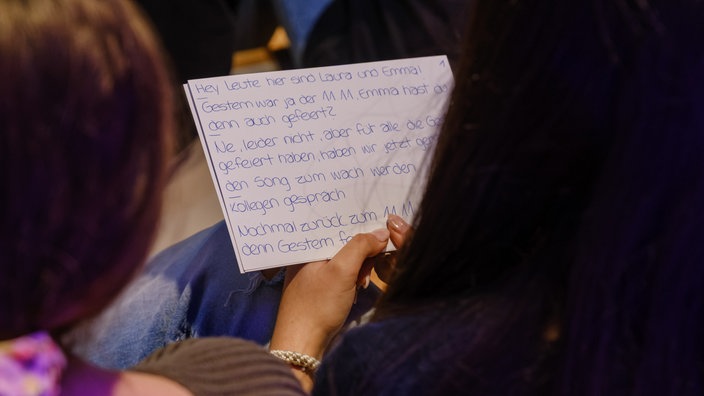 Hey Leute hier sind Laura und Emma! 1
Gestern war ja der 11.11. Emma hast du
denn auch gefeiert?
Ne, leider nicht, aber für alle die Ges
gefeiert haben, haben wir jetzt den
den Song zum wach werden
Kollegen gespräch
Nochmal zurück zum 11.11
denn Gestern